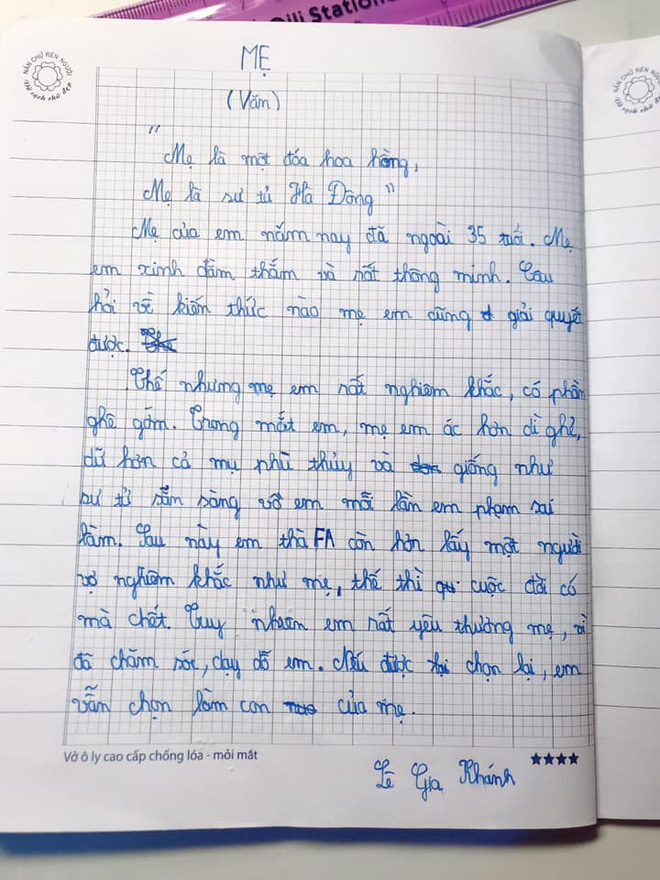 Oli Station
NẮN CHỮ RÈN NGƯỜI
Vở sạch chữ đẹp
NẮN CHỮ RÈN NGƯỜI
Vở sạch chữ đẹp
MẸ
(Văn)
"Mẹ là một đóa hoa hồng,
Mẹ là sư tử Hà Đông"
Mẹ của em năm nay đã ngoài 35 tuổi. Mẹ
em xinh đằm thắm và rất thông minh. Câu
hỏi về kiến thức nào mẹ em cũng giải quyết
được.
Thế nhưng mẹ em rất nghiêm khắc, có phần
ghê gớm. Trong mắt em, mẹ em ác hơn dì ghẻ,
dữ hơn cả mụ phù thủy và giống như
sư tử sẵn sàng vồ em mỗi lần em phạm sai
lầm. Sau này em thà FA còn hơn lấy một người
vợ nghiêm khắc như mẹ, thế thì cuộc đời có
mà chết. Tuy nhiên em rất yêu thương mẹ, vì
đã chăm sóc, dạy dỗ em. Nếu được chọn lại, em
vẫn chọn làm con của mẹ.
Vở ô ly cao cấp chống lóa - mỏi mắt
★★★★
Lê Gia Khánh